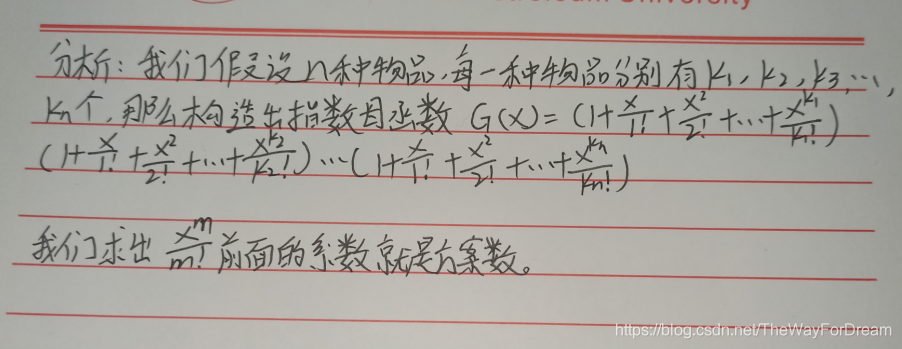 University
分析：我们假设n种物品，每一种物品分别有k₁，k₂，k₃，…，
kₙ个，那么构造出指数母函数 G(x)=(1+x/1!+x²/2!+…+x^k₁/k₁!)
(1+x/1!+x²/2!+…+x^k₂/k₂!)…(1+x/1!+x²/2!+…+x^kₙ/kₙ!)
我们求出 x^m/m! 前面的系数就是方案数。
https://blog.csdn.net/TheWayForDream